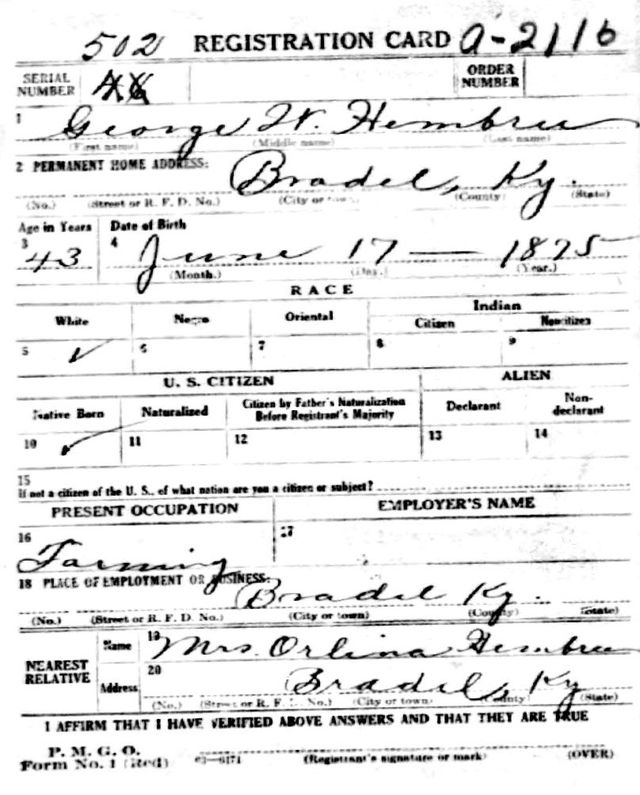 502 REGISTRATION CARD A-2116
SERIAL NUMBER
ORDER NUMBER
1 George W. Hembree
(First name) (Middle name) (Last name)
2 PERMANENT HOME ADDRESS: Bradel, Ky.
(No.) (Street or R. F. D. No.) (City or town) (County) (State)
Age in Years Date of Birth
3 4
43 June 17 — 1875
(Month.) (Day.) (Year.)
RACE
White Negro Oriental Indian
Citizen Noncitizen
5 ✓ 6 7 8 9
U. S. CITIZEN ALIEN
Native Born Naturalized Citizen by Father's Naturalization Before Registrant's Majority Declarant Non-declarant
10 ✓ 11 12 13 14
15
If not a citizen of the U. S., of what nation are you a citizen or subject?
PRESENT OCCUPATION EMPLOYER'S NAME
16 17
Farming
18 PLACE OF EMPLOYMENT OR BUSINESS:
Bradel Ky.
(No.) (Street or R. F. D. No.) (City or town) (County) (State)
NEAREST RELATIVE
Name 19 Mrs. Orlina Hembree
Address 20 Bradel, Ky
(No.) (Street or R. F. D. No.) (City or town) (County) (State)
I AFFIRM THAT I HAVE VERIFIED ABOVE ANSWERS AND THAT THEY ARE TRUE
P. M. G. O.
Form No. 1 (Red) 03-6171 (Registrant's signature or mark) (OVER)